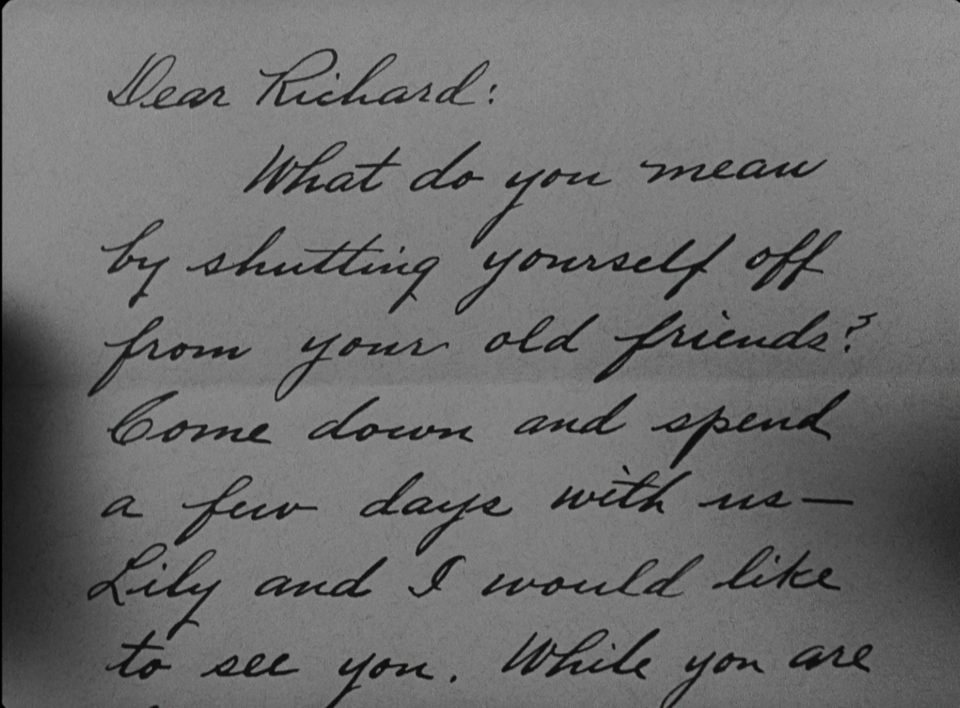 Dear Richard:
What do you mean
by shutting yourself off
from your old friends?
Come down and spend
a few days with us—
Lily and I would like
to see you. While you are